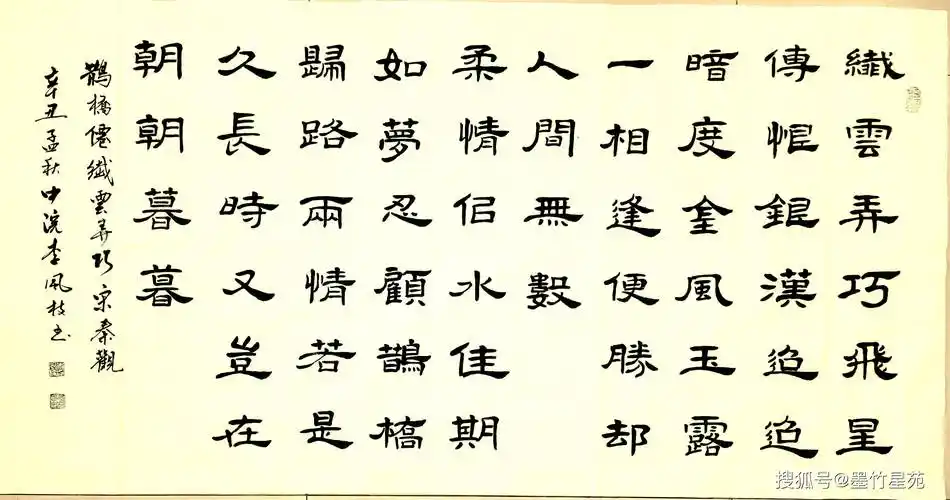 纖雲弄巧飛星
傳恨銀漢迢迢
暗度金風玉露
一相逢便勝却
人間無數
柔情佀水佳期
如夢忍顧鵲橋
歸路兩情若是
久長時又豈在
朝朝暮暮
鵲橋僊纖雲弄巧宋秦觀
辛丑孟秋中浣李風枝书
搜狐号@墨竹星苑